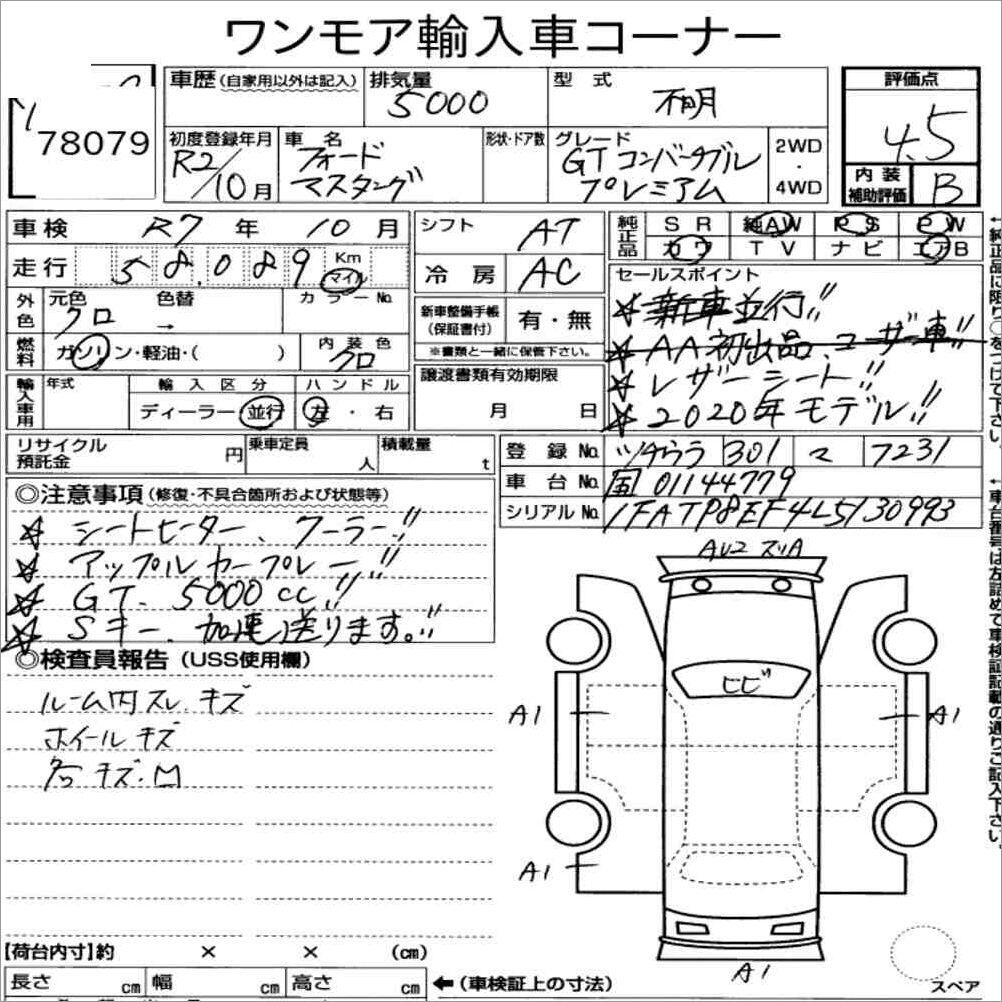 ワンモア輸入車コーナー
78079
車歴 (自家用以外は記入)
排気量 5000
型式 不明
評価点 4.5
初度登録年月 R2/10月
車名 フォード マスタング
形状・ドア数
グレード GTコンバーチブル プレミアム
2WD・4WD
内装補助評価 B
車検 R7年10月
シフト AT
純正品 SR 純AW PS PW
カワ TV ナビ エアB
走行 58,089 Km マイル
冷房 AC
セールスポイント
☆新車並行!!
☆AA初出品、ユーザー車!!
☆レザーシート!!
☆2020年モデル!!
外色 元色 クロ → 色替 カラーNo.
新車整備手帳(保証書付) 有・無
※書類と一緒に保管下さい。
燃料 ガソリン・軽油・( )
内装色 クロ
輸入車用 年式
輸入区分 ディーラー・並行
ハンドル 左・右
譲渡書類有効期限 月 日
リサイクル預託金 円
乗車定員 人
積載量 t
登録No. ツチウラ 301 マ 7231
車台No. 国01144779
シリアルNo. 1FATP8EF4L5130993
◎注意事項(修復・不具合箇所および状態等)
☆シートヒーター、クーラー!!
☆アップルカープレー!!
☆GT、5000cc!!
☆Sキー、加速送ります。!!
◎検査員報告(USS使用欄)
ルーム内スレ、キズ
ホイールキズ
キズ・凹
AU2 スリA
ヒビ
A1
A1
A1
A1
スペア
【荷台内寸】約 × × (cm)
長さ cm 幅 cm 高さ cm
←(車検証上の寸法)
←純正品に限り○をつけて下さい。
←車台番号は左詰めで車検証記載の通りご記入下さい。